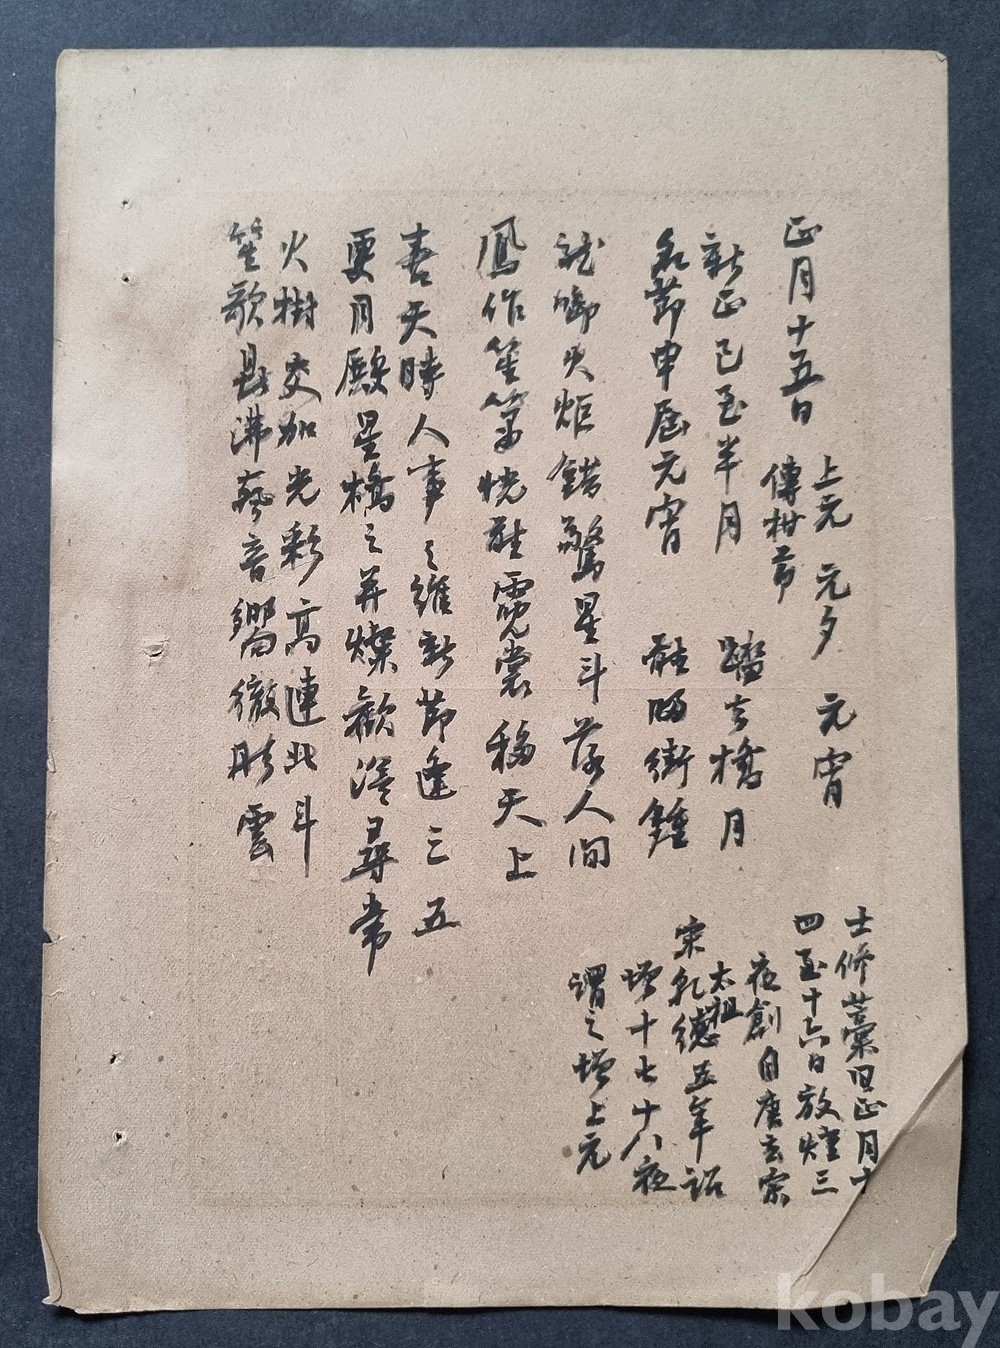 正月十五日 上元 元夕 元宵
傳柑節
新正已至半月 踏去橋月
名節申屆元宵 街鐘
啣火炬錯驚星斗落人間
鳳作笙簫恍聽霓裳移天上
喜天時人事之維新節逢三五
更月殿星橋之並燦歡溢尋常
火樹交加光彩高連北斗
笙歌鼎沸音響徹彤雲
正月十
四至十六日放燈三
夜創自唐玄宗
宋太祖乹德五年詔
增十七十八夜
謂之增上元
kobay